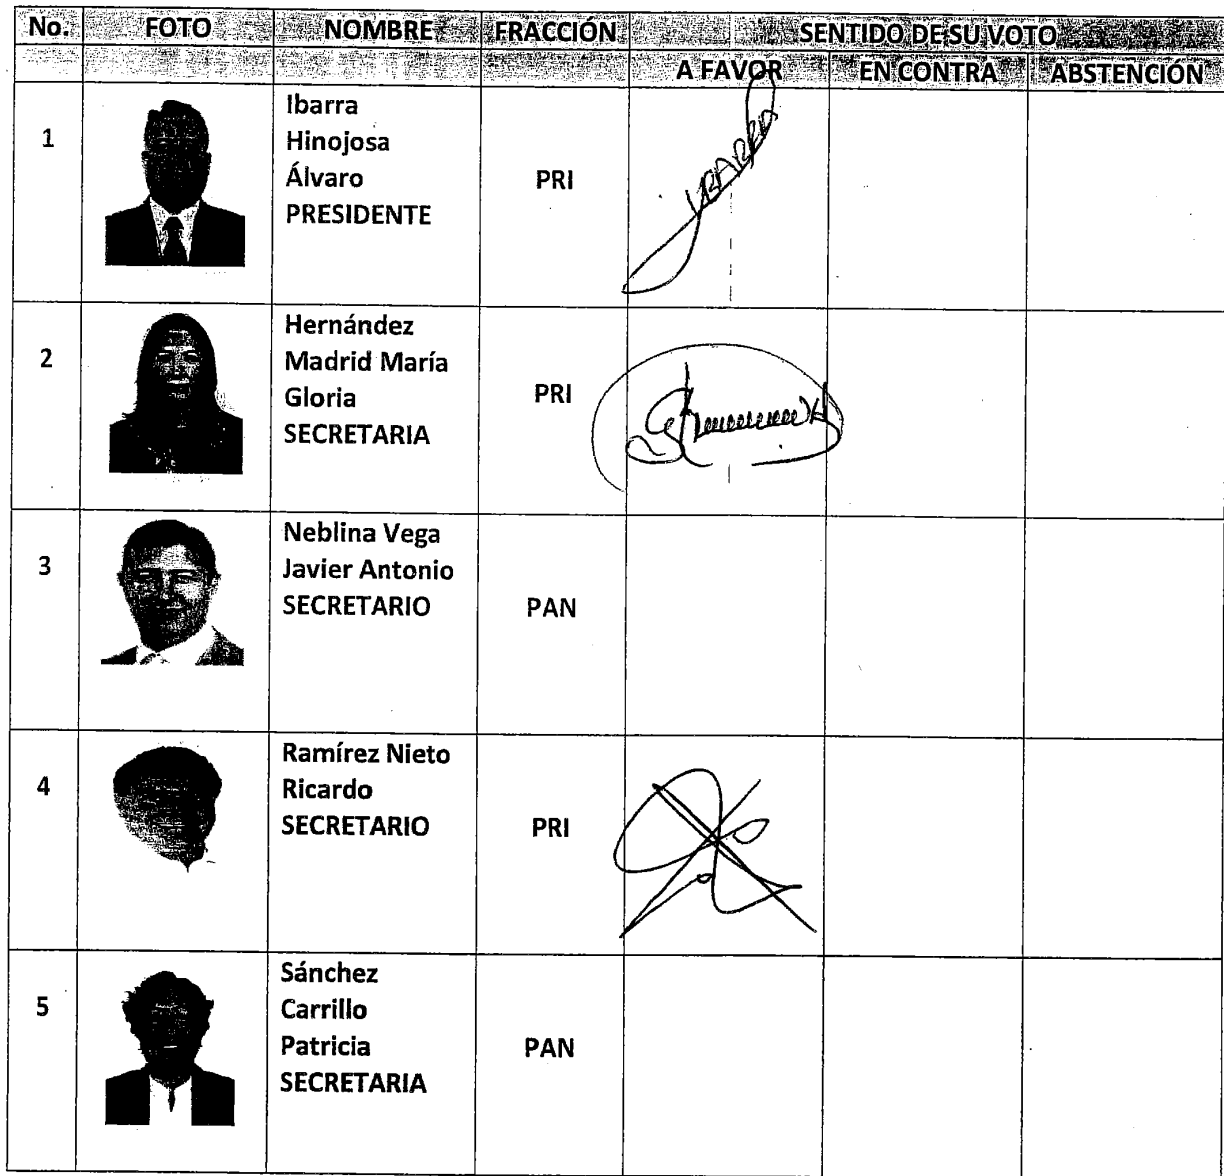 No. FOTO NOMBRE FRACCIÓN SENTIDO DE SU VOTO
A FAVOR EN CONTRA ABSTENCIÓN
1
Ibarra
Hinojosa
Álvaro
PRESIDENTE
PRI
IBARRA
2
Hernández
Madrid María
Gloria
SECRETARIA
PRI
3
Neblina Vega
Javier Antonio
SECRETARIO
PAN
4
Ramírez Nieto
Ricardo
SECRETARIO
PRI
5
Sánchez
Carrillo
Patricia
SECRETARIA
PAN